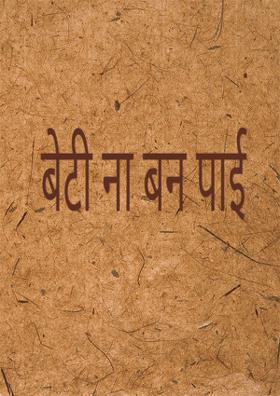 बेटी ना बन पाई